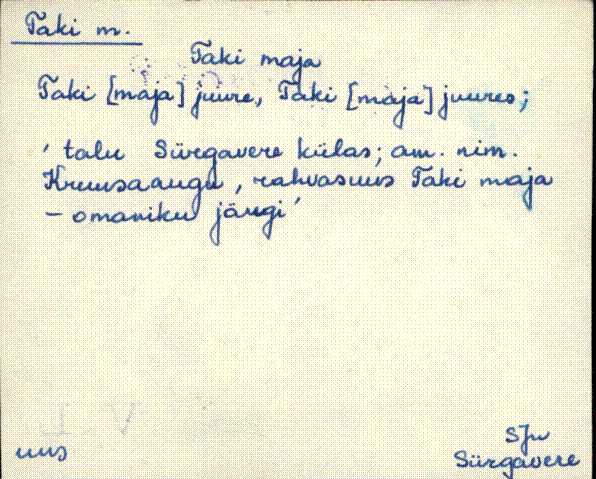 Taki m.
Taki maja
Taki [maja] juure, Taki [maja] juures;
'talu Sürgavere külas; am. nim.
Kruusaaugu, rahvasuus Taki maja
- omaniku järgi'
SJn
Sürgavere
uus